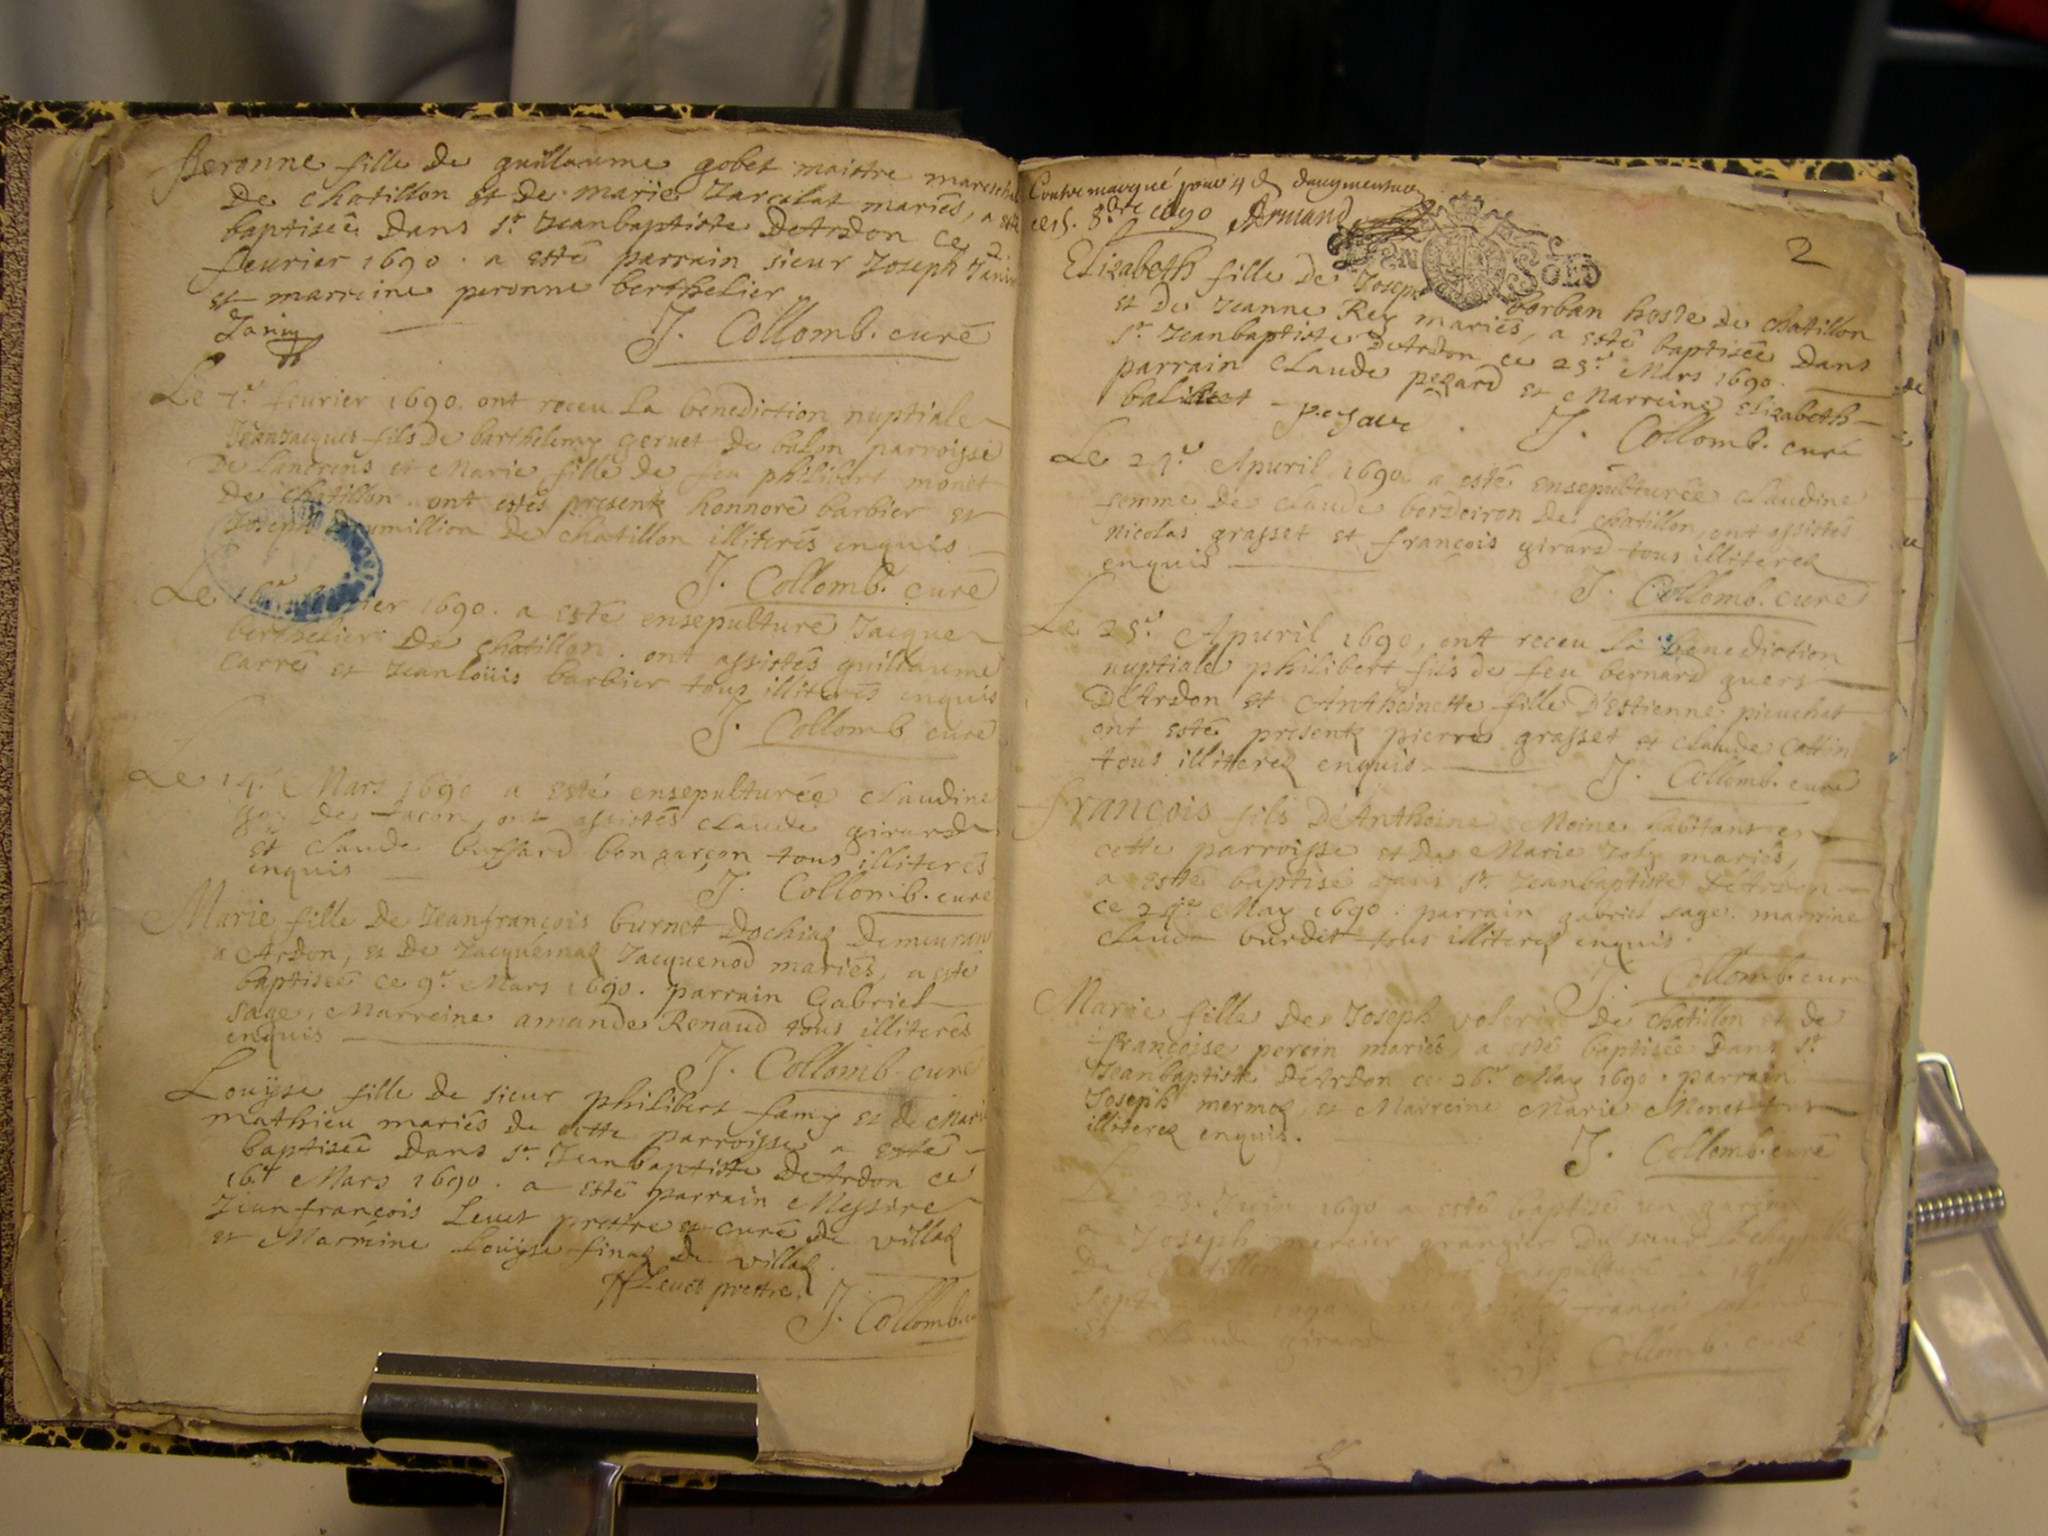 Peronne fille de guillaume gobet maistre mareschal
de chatillon et de marie Zarcelat mariés, a esté
baptisée Dans st Jeanbaptiste DeArdon ce 2
feurier 1690. a esté parrain sieur Joseph Janin
et marreine peronne berthelier
Janin J. Collomb. curé
Le 7e feurier 1690. ont receu la benediction nuptiale
Jeanjacques fils de barthelemy geruet de
parroisse
De Lancrens et Marie fille de feu philibert monet
de chatillon. ont estés presentz honnoré barbier et
Joseph de chatillon illiterés enquis
J. Collomb. curé
Le 16e 1690. a esté ensepulturé Jacque
berthelier de chatillon. ont assistés guillaume
carré et Jeanloüis barbier tous illiterés enquis
J. Collomb curé
Le 14e Mars 1690 a esté ensepulturée claudine
de ont assistés claude girard
et claude buffard bon garçon tous illiterés
enquis
J. Collomb. curé
Marie fille de Jeanfrançois burnet Dochiaz Demeurant
a Ardon, et de Jacquemaz Jacquenod mariés, a esté
baptisée ce 9e Mars 1690. parrain Gabriel
sage, Marreine amande Renaud tous illiterés
enquis
J. Collomb curé
Louÿse fille de sieur philibert famy et de Marie
mathieu mariés de cette parroisse a esté
baptisée Dans st Jeanbaptiste DeArdon ce
16e Mars 1690. a esté parrain Messire
Jeanfrançois Leuet prestre et curé de villaz
et Marreine Loüyse finaz de villaz.
Jf Leuet prestre. J. Collomb. cu
Contremarqué pour 4 d daugmentaon
ce 15. 8bre 1690 Armand
2
DEN SOLD
Elizabeth fille de Joseph borban hoste de chatillon
et de Jeanne Rey mariés, a esté baptisée Dans
st Jeanbaptiste DeArdon ce 25e Mars 1690.
parrain claude pezard et Marreine Elizabeth
J. Collomb. curé
Le 21e Apuril 1690 a esté ensepulturée claudine
femme de claude bordeiron de chatillon, ont assistés
nicolas grasset et françois girard tous illiterez
enquis
J. Collomb. curé
Le 25e Apuril 1690, ont receu la benediction
nuptiale philibert fils de feu bernard guers
DéArdon et Anthoinette fille D'Estienne picuchet
ont esté presentz pierre grasset et claude cattin
tous illiterez enquis
J. Collomb. curé
françois fils DéAnthoine Moine habitant en
cette parroisse et de Marie Joly mariés,
a esté baptisé dans st Jeanbaptiste DéArdon
ce 24e May 1690. parrain gabriel sage. marreine
claude burdet tous illiterez enquis.
J. Collomb. cur
Marie fille de Joseph de chatillon et de
françoise perrin mariés, a esté baptisée Dans st
Jeanbaptiste DéArdon ce 26e May 1690. parrain
Joseph mermoz, et Marreine Marie Monet tous
illiterez enquis.
J. Collomb. curé
Le Juin 1690 a esté baptisé un garçon
a Joseph mercier grangier du sieur
De chatillon
septe françois
et claude girard
J. Collomb. curé